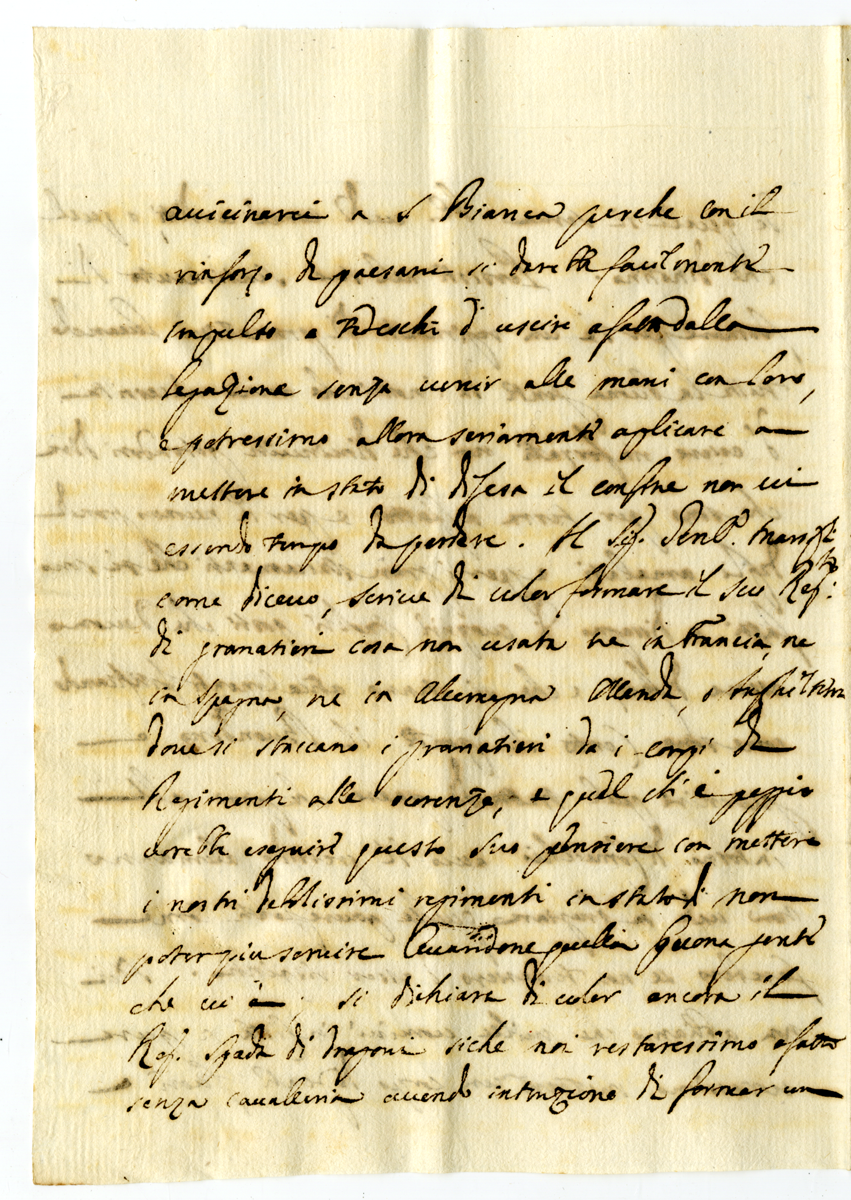 avvicinarci a S Bianca perche con il
rinforzo di paesani si darebbe facilmente
impulso a Tedeschi di uscire afatto dalla
legazione senza venir alle mani con loro,
e potressimo allora seriamente aplicare a
mettere in stato di difesa il confine non vi
essendo tempo da perdere. Il Sig.r Genle.
come dicevo, scrive di voler formare il suo Reg.to
di granatieri cosa non usata ne in Francia, ne
in Spagna, ne in Alemagna Ollanda, o Inghilterra
dove si staccano i granatieri da i corpi di
Regimenti alle ocorenze, e quel ch'è peggio
vorebbe eseguire questo suo pensiere con mettere
i nostri debolissimi regimenti in stato di non
poter piu servire levandone quella buona gente
che vi è; si dichiara di voler ancora il
Reg. Spada di dragoni siche noi restaressimo afatto
senza cavalleria avendo intenzione di formar un